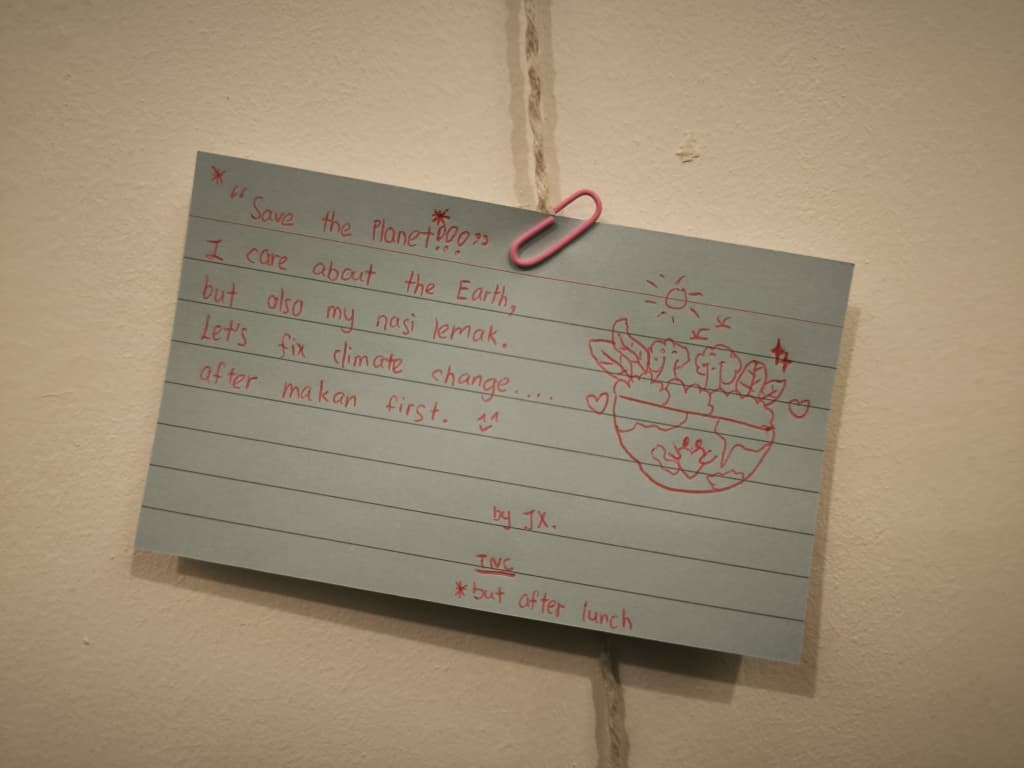 * "Save the Planet*!!!"
I care about the Earth,
but also my nasi lemak.
Let's fix climate change....
after makan first. ^^
by JX.
TNC
*but after lunch